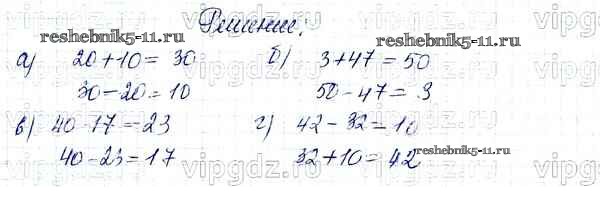 Решение.
а) 20+10=30 б) 3+47=50
30-20=10 50-47=3
в) 40-17=23 г) 42-32=10
40-23=17 32+10=42
reshebnik5-11.ru
reshebnik5-11.ru
reshebnik5-11.ru
vipgdz.ru vipgdz.ru vipgdz.ru
vipgdz.ru vipgdz.ru vipgdz.ru
vipgdz.ru vipgdz.ru vipgdz.ru